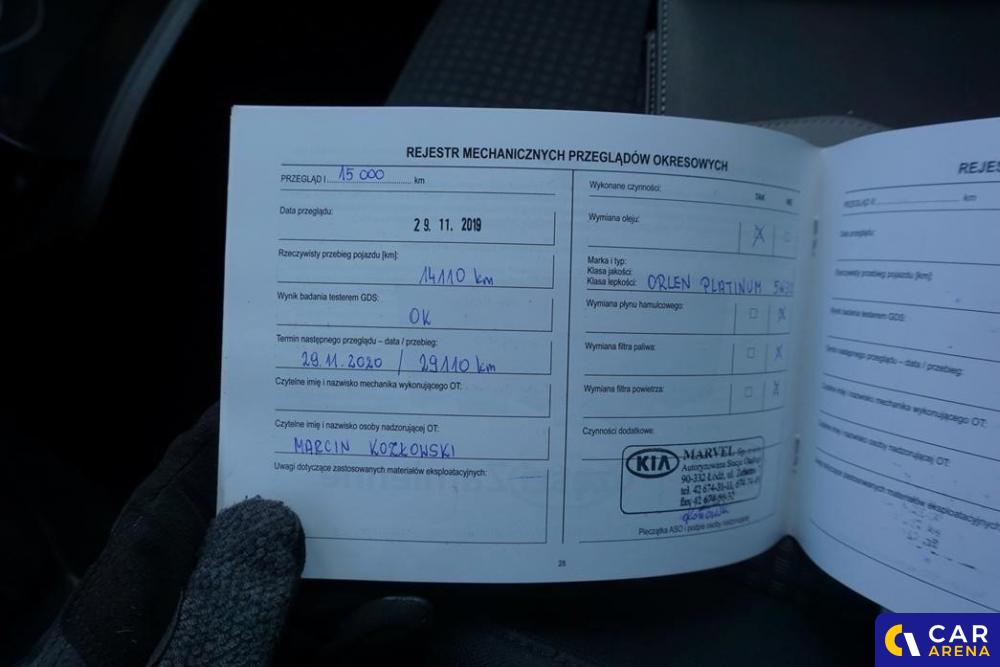 REJESTR MECHANICZNYCH PRZEGLĄDÓW OKRESOWYCH
PRZEGLĄD I 15 000 km
Data przeglądu:
29. 11. 2019
Rzeczywisty przebieg pojazdu [km]:
14110 km
Wynik badania testerem GDS:
OK
Termin następnego przeglądu – data / przebieg:
29.11.2020 / 29110 km
Czytelne imię i nazwisko mechanika wykonującego OT:
Czytelne imię i nazwisko osoby nadzorującej OT:
MARCIN KOZŁOWSKI
Uwagi dotyczące zastosowanych materiałów eksploatacyjnych:
Wykonane czynności:
TAK NIE
Wymiana oleju:
X
Marka i typ:
Klasa jakości:
Klasa lepkości: ORLEN PLATINUM 5W30
Wymiana płynu hamulcowego:
X
Wymiana filtra paliwa:
X
Wymiana filtra powietrza:
X
Czynności dodatkowe:
KIA MARVEL Sp.
Autoryzowana Stacja
90-332 Łódź, ul.
tel. 42 674-31-11,
fax 42
Pieczątka ASO i podpis osoby nadzorującej
28
REJES
PRZEGLĄD km
Data przeglądu:
Rzeczywisty przebieg pojazdu [km]:
Wynik badania testerem GDS:
Termin następnego przeglądu – data / przebieg:
Czytelne imię i nazwisko mechanika wykonującego OT:
Czytelne imię i nazwisko osoby nadzorującej OT:
Uwagi dotyczące zastosowanych materiałów eksploatacyjnych:
CAR
ARENA